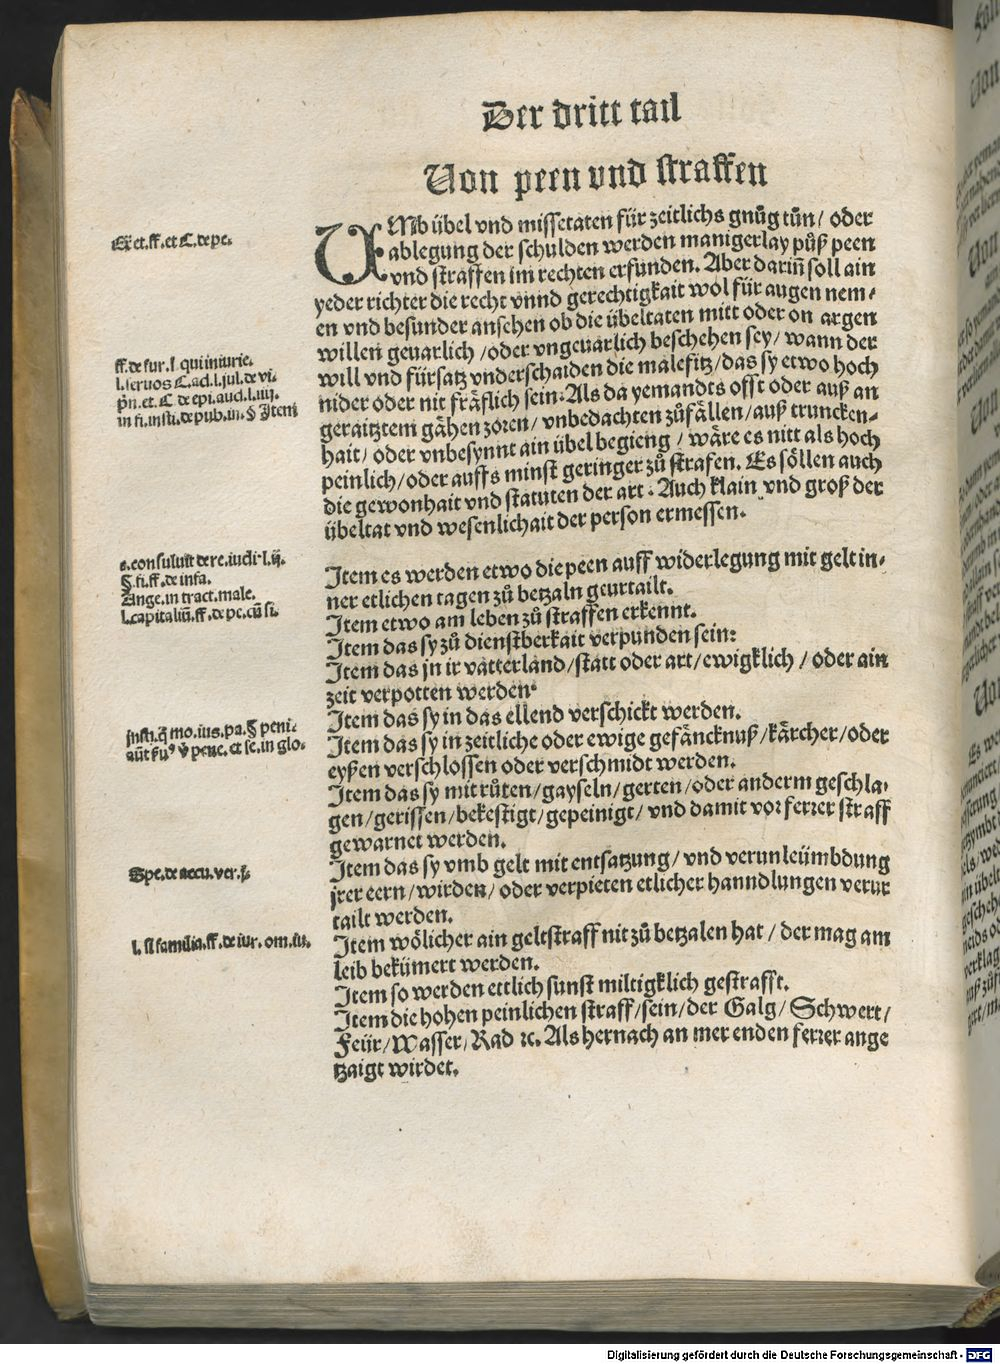 Der dritt tail
Von peen vnd straffen
Ex̄ et. ff. et C. de pe.
VMb übel vnd missetaten für zeitlichs gnůg tůn / oder
ablegung der schulden werden manigerlay půß peen
vnd straffen im rechten erfunden. Aber dariñ soll ain
yeder richter die recht vnnd gerechtigkait wol für augen nem⸗
en vnd besunder ansehen ob die übeltaten mitt oder on argen
willen geuarlich / oder vngeuarlich beschehen sey / wann der
will vnd fürsatz vnderschaiden die malefitz / das sy etwo hoch
nider oder nit fräflich sein: Als da yemandts offt oder auß an
geraitztem gähen zoren / vnbedachten zůfällen / auß truncken⸗
hait / oder vnbesynnt ain übel begieng / wäre es nitt als hoch
peinlich / oder auffs minst geringer zů strafen. Es söllen auch
die gewonhait vnd statuten der art. Auch klain vnd groß der
übeltat vnd wesenlichait der person ermessen.
ff. de fur. l. qui iniurie.
l. seruos C. ad. l. jul. de vi.
pn̄. et. C de epi. aud. l. iiij.
in fi. insti. de pub. iu. § Item
Item es werden etwo die peen auff widerlegung mit gelt in⸗
ner etlichen tagen zů betzaln geurtailt.
Item etwo am leben zů straffen erkennt.
Item das sy zů dienstberkait verpunden sein:
Item das jn ir vatterland / statt oder art / ewigklich / oder ain
zeit verpotten werden.
Item das sy in das ellend verschickt werden.
Item das sy in zeitliche oder ewige gefäncknuß / kärcher / oder
eyßen verschlossen oder verschmidt werden.
Item das sy mit růten / gayseln / gerten / oder anderm geschla⸗
gen / gerissen / bekestigt / gepeinigt / vnd damit vor ferrer straff
gewarnet werden.
Item das sy vmb gelt mit entsatzung / vnd verunleümbdung
jrer eern / wirden / oder verpieten etlicher hanndlungen verur
tailt werden.
Item wölicher ain geltstraff nit zů betzalen hat / der mag am
leib bekümert werden.
Item so werden ettlich sunst miltigklich gestrafft.
Item die hohen peinlichen straff / sein / der Galg / Schwert /
Feür / Wasser / Rad ꝛc. Als hernach an mer enden ferrer ange
tzaigt wirdet.
consuluit de re. iudi. l. ij.
§. fi. ff. de infa.
Ange. in tract. male.
l. capitaliū. ff. de pe. cū si.
insti. q̄ mo. ius. pa. § peni⸗
pene. et se. in glo.
Spe. de accu. ver. j.
l. si familia. ff. de iur. om. iu.
Digitalisierung gefördert durch die Deutsche Forschungsgemeinschaft - DFG